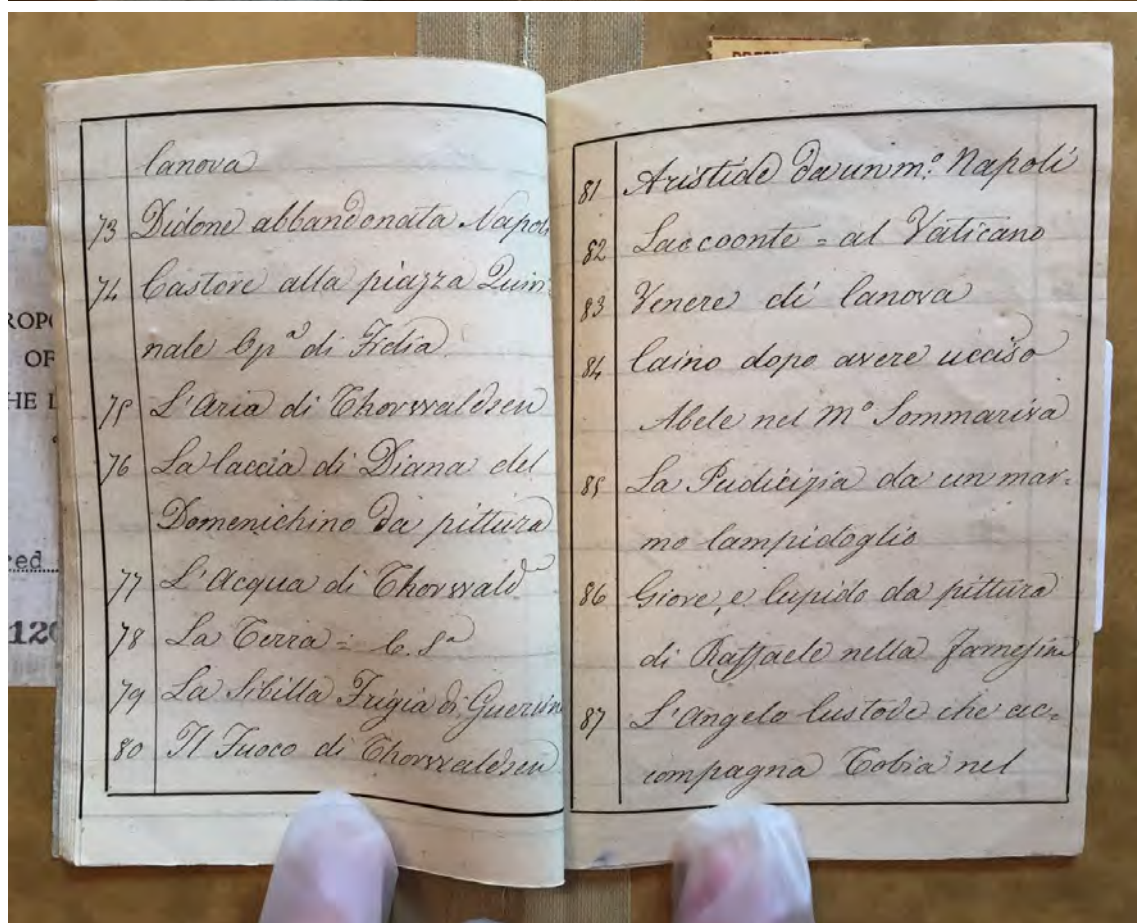 Canova
73 Didone abbandonata Napoli
74 Castore alla piazza Quiri-
nale Op.ª di Fidia
75 L'Aria di Thorwaldsen
76 La Caccia di Diana del
Domenichino da pittura
77 L'Acqua di Thorwald
78 La Terra = C. Sª
79 La Sibilla Frigia di Guercino
80 Il Fuoco di Thorwaldsen
81 Aristide da un m.º Napoli
82 Laocoonte = al Vaticano
83 Venere di Canova
84 Caino dopo avere ucciso
Abele nel Mº Sommariva
85 La Pudicizia da un mar=
mo Campidoglio
86 Giove, e Cupido da pittura
di Raffaele nella Farnesina
87 L'Angelo Custode che ac=
compagna Tobia nel
OF
HE L
120